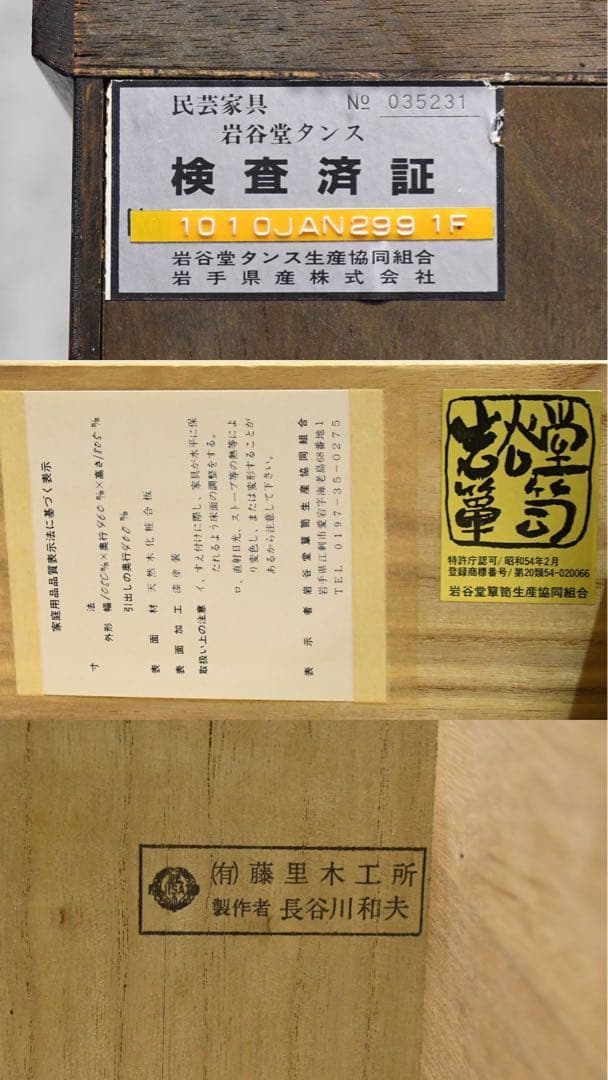 民芸家具 № 035231
岩谷堂タンス
検査済証
1010JAN2991F
岩谷堂タンス生産協同組合
岩手県産株式会社
家庭用品品質表示法に基づく表示
寸法
外形 幅1050㎜×奥行460㎜×高さ1805㎜
引出しの奥行400㎜
表面材 天然木化粧合板
表面加工 漆塗装
取扱い上の注意 イ、すえ付けに際し、家具が水平に保
たれるよう床面の調整をする。
ロ、直射日光、ストーブ等の熱等によ
り変色し、または変形することが
あるから注意して下さい。
表示者 岩谷堂箪笥生産協同組合
岩手県江刺市愛宕字海老島68番地1
TEL 0197-35-0275
岩谷堂箪笥
特許庁認可/昭和54年2月
登録商標番号/第20類54-020066
岩谷堂箪笥生産協同組合
㈲藤里木工所
製作者 長谷川和夫